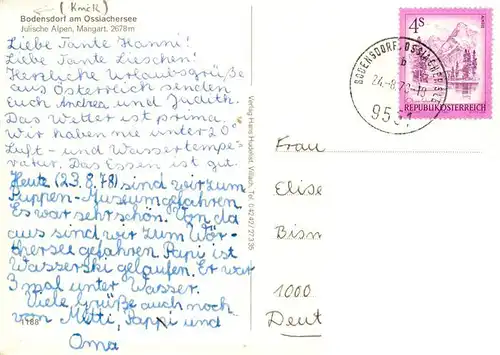 (Knick)
Bodensdorf am Ossiachersee
Julische Alpen, Mangart, 2678m
Liebe Tante Hanni!
Liebe Tante Lieschen!
Herzliche Urlaubsgrüße
aus Österreich senden
Euch Andrea und Judith.
Das Wetter ist prima.
Wir haben nie unter 20°
Luft- und Wassertempe-
ratur. Das Essen ist gut.
Heute (23.8.78) sind wir zum
Puppen-Museum gefahren.
Es war sehr schön. Von da
aus sind wir zum Wör-
thersee gefahren. Papi ist
Wasserski gelaufen. Er war
3 mal unter Wasser.
Viele Grüße auch noch
von Mutti, Pappi und
Oma
1188
Verlag Hans Hruschka, Villach, Tel. 04242/27335
BODENSDORF, OSSIACHERSEE
b
24.-8.78-18
9551
4S
REPUBLIK ÖSTERREICH
Frau
Elise
Bism
1000
Deut